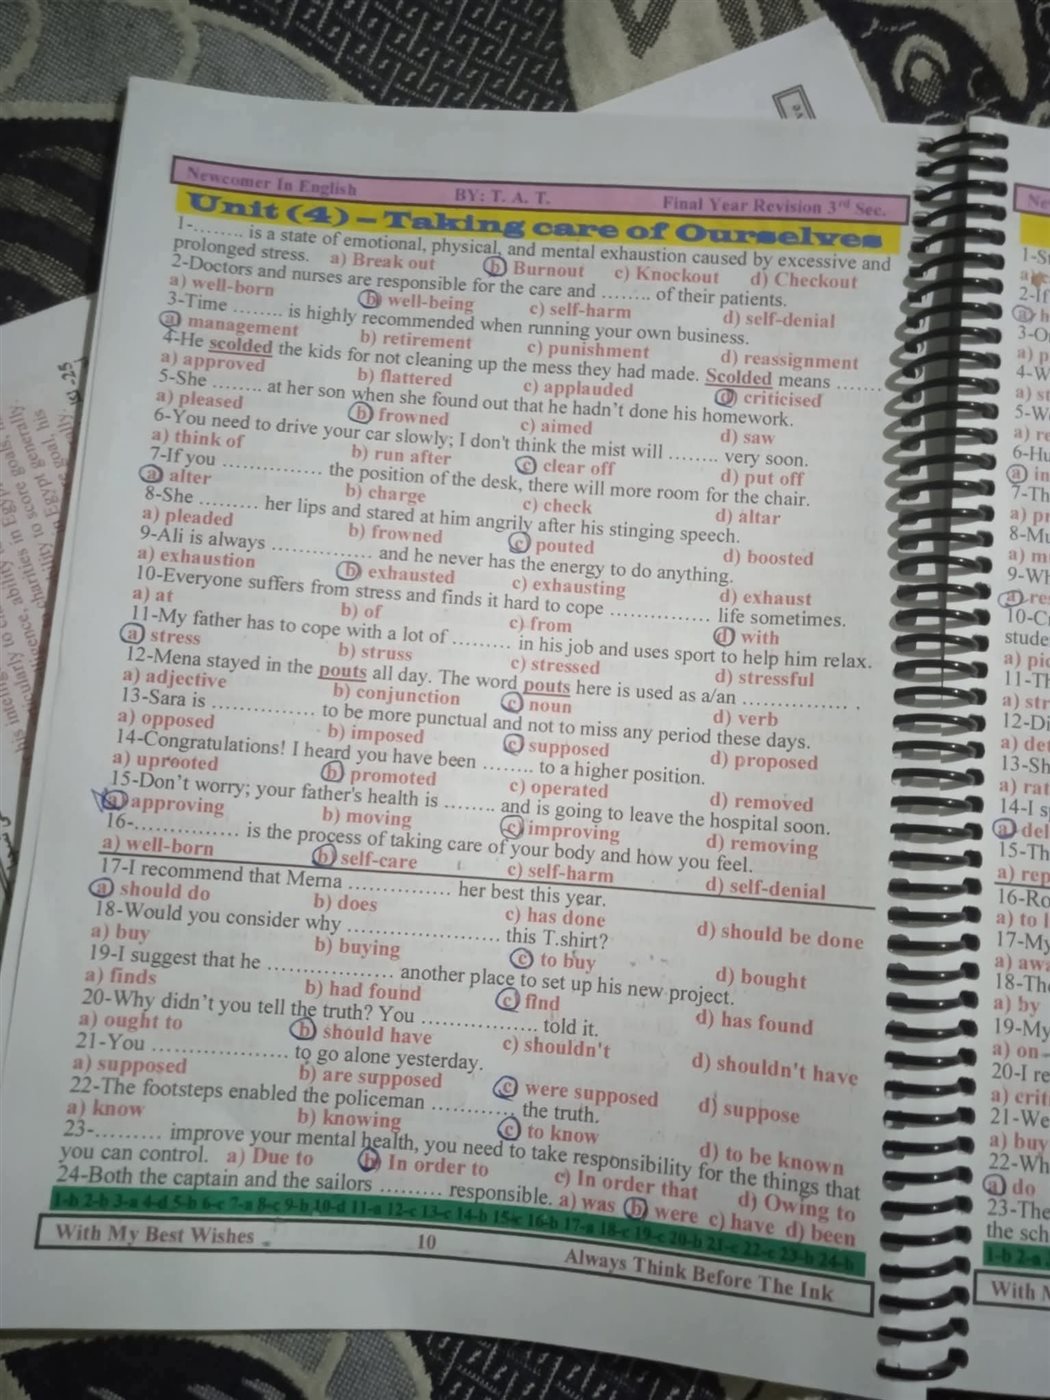 Newcomer In English BY: T. A. T. Final Year Revision 3rd Sec.
Unit (4) – Taking care of Ourselves
1-........ is a state of emotional, physical, and mental exhaustion caused by excessive and
prolonged stress. a) Break out b) Burnout c) Knockout d) Checkout
2-Doctors and nurses are responsible for the care and ........ of their patients.
a) well-born b) well-being c) self-harm d) self-denial
3-Time ........ is highly recommended when running your own business.
a) management b) retirement c) punishment d) reassignment
4-He scolded the kids for not cleaning up the mess they had made. Scolded means .......
a) approved b) flattered c) applauded d) criticised
5-She ........ at her son when she found out that he hadn't done his homework.
a) pleased b) frowned c) aimed d) saw
6-You need to drive your car slowly; I don't think the mist will ........ very soon.
a) think of b) run after c) clear off d) put off
7-If you ............. the position of the desk, there will more room for the chair.
a) alter b) charge c) check d) altar
8-She ......... her lips and stared at him angrily after his stinging speech.
a) pleaded b) frowned c) pouted d) boosted
9-Ali is always ............. and he never has the energy to do anything.
a) exhaustion b) exhausted c) exhausting d) exhaust
10-Everyone suffers from stress and finds it hard to cope ............. life sometimes.
a) at b) of c) from d) with
11-My father has to cope with a lot of ......... in his job and uses sport to help him relax.
a) stress b) struss c) stressed d) stressful
12-Mena stayed in the pouts all day. The word pouts here is used as a/an .............. .
a) adjective b) conjunction c) noun d) verb
13-Sara is .............. to be more punctual and not to miss any period these days.
a) opposed b) imposed c) supposed d) proposed
14-Congratulations! I heard you have been ........ to a higher position.
a) uprooted b) promoted c) operated d) removed
15-Don't worry; your father's health is ........ and is going to leave the hospital soon.
a) approving b) moving c) improving d) removing
16-.............. is the process of taking care of your body and how you feel.
a) well-born b) self-care c) self-harm d) self-denial
17-I recommend that Mema .............. her best this year.
a) should do b) does c) has done d) should be done
18-Would you consider why ..................... this T.shirt?
a) buy b) buying c) to buy d) bought
19-I suggest that he ................. another place to set up his new project.
a) finds b) had found c) find d) has found
20-Why didn't you tell the truth? You ................ told it.
a) ought to b) should have c) shouldn't d) shouldn't have
21-You .................. to go alone yesterday.
a) supposed b) are supposed c) were supposed d) suppose
22-The footsteps enabled the policeman ............ the truth.
a) know b) knowing c) to know d) to be known
23-......... improve your mental health, you need to take responsibility for the things that
you can control. a) Due to b) In order to c) In order that d) Owing to
24-Both the captain and the sailors ......... responsible. a) was b) were c) have d) been
1-b 2-b 3-a 4-d 5-b 6-c 7-a 8-c 9-b 10-d 11-a 12-c 13-c 14-b 15-c 16-b 17-a 18-c 19-c 20-b 21-c 22-c 23-b 24-b
With My Best Wishes 10 Always Think Before The Ink